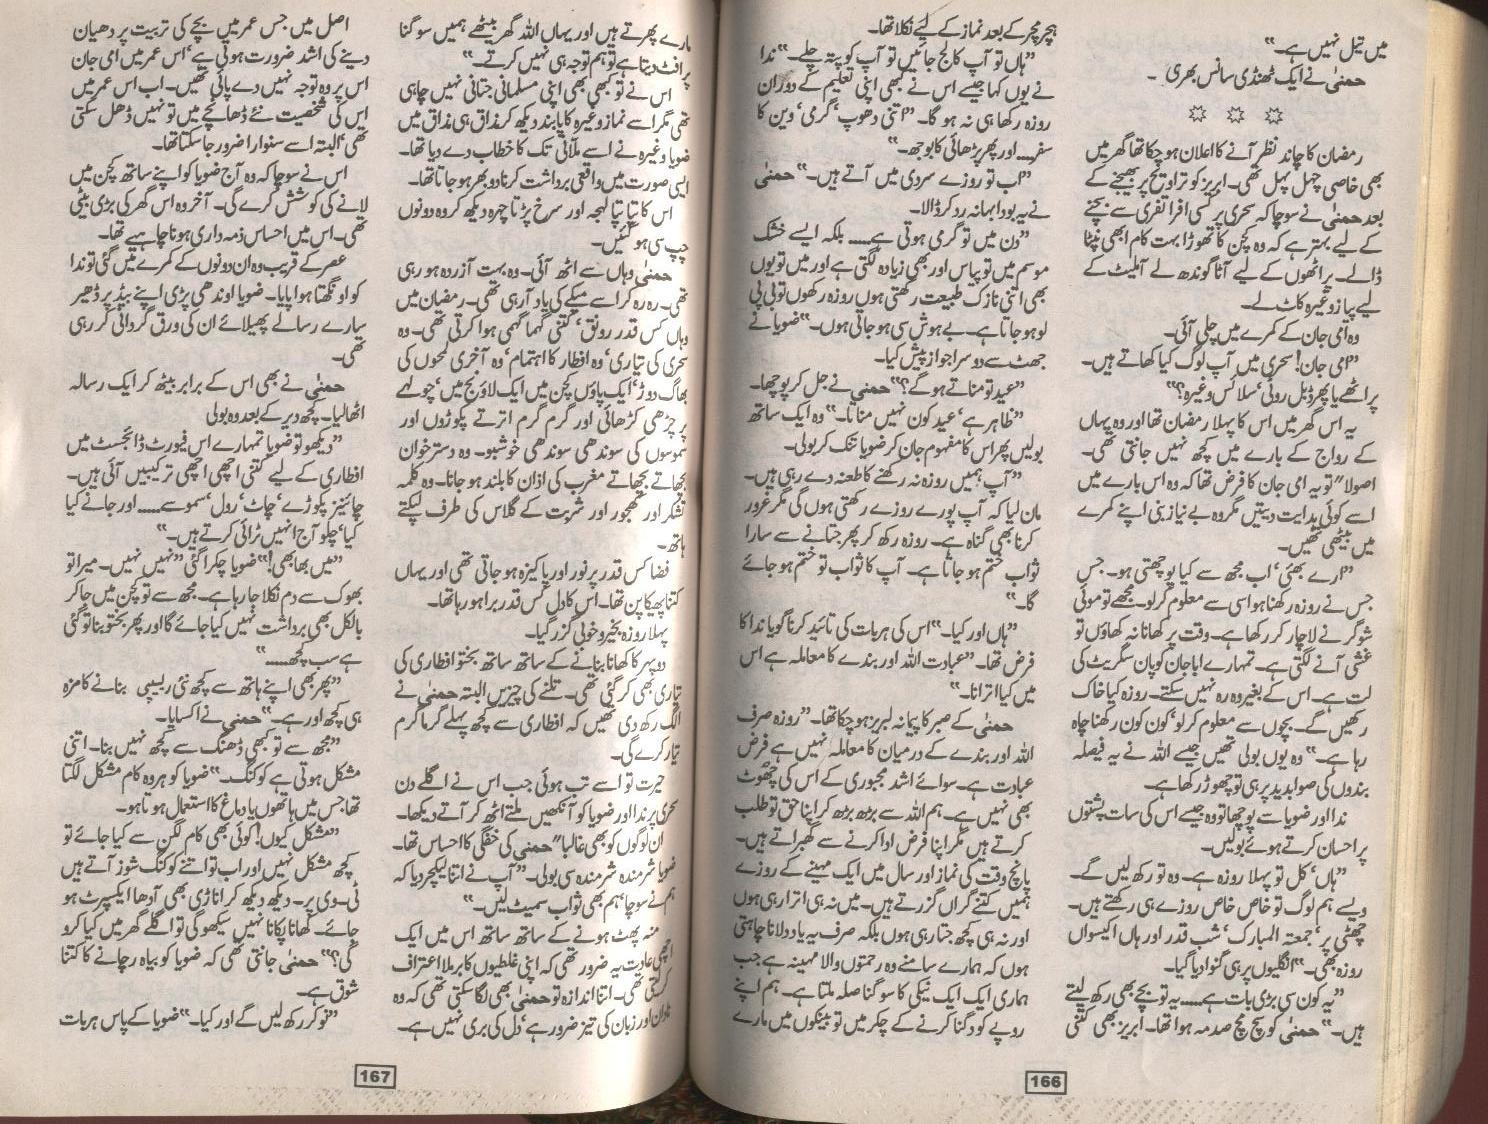 میں تیل نہیں ہے۔“
حمنیٰ نے ایک ٹھنڈی سانس بھری ۔
رمضان کا چاند نظر آنے کا اعلان ہو چکا تھا گھر میں
بھی خاصی چہل پہل تھی۔ ابریز کو تراویح پر بھیجنے کے
بعد حمنیٰ نے سوچا کہ سحری پر کسی افراتفری سے بچنے
کے لیے بہتر ہے کہ وہ کچن کا تھوڑا بہت کام ابھی نپٹا
ڈالے۔ پراٹھوں کے لیے آٹا گوندھ لے آملیٹ کے
لیے پیاز وغیرہ کاٹ لے۔
وہ امی جان کے کمرے میں چلی آئی۔
”امی جان! سحری میں آپ لوگ کیا کھاتے ہیں۔
پراٹھے یا پھر ڈبل روٹی‘ سلائس وغیرہ؟“
یہ اس گھر میں اس کا پہلا رمضان تھا اور وہ یہاں
کے رواج کے بارے میں کچھ نہیں جانتی تھی۔
اصولاً“ تو یہ امی جان کا فرض تھا کہ وہ اس بارے میں
اسے کوئی ہدایت دیتیں مگر وہ بے نیاز بنی اپنے کمرے
میں بیٹھی تھیں۔
”ارے بھئی‘ اب مجھ سے کیا پوچھتی ہو۔ جس
جس نے روزہ رکھنا ہو اسی سے معلوم کرلو۔ مجھے تو موئی
شوگر نے لاچار کر رکھا ہے۔ وقت پر کھانا نہ کھاؤں تو
غشی آنے لگتی ہے۔ تمہارے ابا جان کو پان سگریٹ کی
لت ہے۔ اس کے بغیر وہ رہ نہیں سکتے۔ روزہ کیا خاک
رکھیں گے۔ بچوں سے معلوم کرلو‘ کون کون رکھنا چاہ
رہا ہے۔“ وہ یوں بولی تھیں جیسے اللہ نے یہ فیصلہ
بندوں کی صوابدید پر ہی تو چھوڑ رکھا ہے۔
ندا اور ضویا سے پوچھا تو وہ جیسے اس کی سات پشتوں
پر احسان کرتے ہوئے بولیں۔
”ہاں‘ کل تو پہلا روزہ ہے۔ وہ تو رکھ لیں گے۔
ویسے ہم لوگ تو خاص خاص روزے ہی رکھتے ہیں۔
چھٹی پر‘ جمعتہ المبارک‘ شب قدر اور ہاں اکیسواں
روزہ بھی۔“ انگلیوں پر ہی گنوا دیا گیا۔
”یہ کون سی بڑی بات ہے..... یہ تو بچے بھی رکھ لیتے
ہیں۔“ حمنیٰ کو سچ مچ صدمہ ہوا تھا۔ ابریز بھی کتنی
ہچر مچر کے بعد نماز کے لیے نکلا تھا۔
”ہاں تو آپ کالج جائیں تو آپ کو پتہ چلے۔“ ندا
نے یوں کہا جیسے اس نے کبھی اپنی تعلیم کے دوران
روزہ رکھا ہی نہ ہو گا۔ ”اتنی دھوپ‘ گرمی‘ وین کا
سفر.... اور پھر پڑھائی کا بوجھ۔“
”اب تو روزے سردی میں آتے ہیں۔“ حمنیٰ
نے یہ بودا بہانہ رد کر ڈالا۔
”دن میں تو گرمی ہوتی ہے..... بلکہ ایسے خشک
موسم میں تو پیاس اور بھی زیادہ لگتی ہے اور میں تو یوں
بھی اتنی نازک طبیعت رکھتی ہوں روزہ رکھوں تو بی پی
لو ہو جاتا ہے۔ بے ہوش سی ہو جاتی ہوں۔“ ضویا نے
جھٹ سے دوسرا جواز پیش کیا۔
”عید تو مناتے ہوگے؟“ حمنیٰ نے جل کر پوچھا۔
”ظاہر ہے‘ عید کون نہیں مناتا۔“ وہ ایک ساتھ
بولیں پھر اس کا مفہوم جان کر ضویا تنک کر بولی۔
”آپ ہمیں روزہ نہ رکھنے کا طعنہ دے رہی ہیں۔
مان لیا کہ آپ پورے روزے رکھتی ہوں گی مگر غرور
کرنا بھی گناہ ہے۔ روزہ رکھ کر پھر جتانے سے سارا
ثواب ختم ہو جاتا ہے۔ آپ کا ثواب تو ختم ہو جائے
گا۔“
”ہاں اور کیا۔“ اس کی ہر بات کی تائید کرنا گویا ندا کا
فرض تھا۔ ”عبادت اللہ اور بندے کا معاملہ ہے اس
میں کیا اترانا۔“
حمنیٰ کے صبر کا پیمانہ لبریز ہو چکا تھا۔ ”روزہ صرف
اللہ اور بندے کے درمیان کا معاملہ نہیں ہے فرض
عبادت ہے۔ سوائے اشد مجبوری کے اس کی چھوٹ
بھی نہیں ہے۔ ہم اللہ سے بڑھ بڑھ کر اپنا حق تو طلب
کرتے ہیں مگر اپنا فرض ادا کرنے سے گھبراتے ہیں۔
پانچ وقت کی نماز اور سال میں ایک مہینے کے روزے
ہمیں کتنے گراں گزرتے ہیں۔ میں نہ ہی اترا رہی ہوں
اور نہ ہی کچھ جتا رہی ہوں بلکہ صرف یہ یاد دلانا چاہتی
ہوں کہ ہمارے سامنے وہ رحمتوں والا مہینہ ہے جب
ہماری ایک ایک نیکی کا سو گنا صلہ ملتا ہے۔ ہم اپنے
روپے کو دگنا کرنے کے چکر میں تو بینکوں میں مارے
166
مارے پھرتے ہیں اور یہاں اللہ گھر بیٹھے ہمیں سو گنا
پرافٹ دیتا ہے تو ہم توجہ ہی نہیں کرتے۔“
اس نے تو کبھی بھی اپنی مسلمانی جتانی نہیں چاہی
تھی مگر اسے نماز وغیرہ کا پابند دیکھ کر مذاق ہی مذاق میں
ضویا وغیرہ نے اسے ملانی تک کا خطاب دے دیا تھا۔
ایسی صورت میں واقعی برداشت کرنا دوبھر ہو جاتا تھا۔
اس کا تپا تپا لہجہ اور سرخ پڑتا چہرہ دیکھ کر وہ دونوں
چپ سی ہو گئیں۔
حمنیٰ وہاں سے اٹھ آئی۔ وہ بہت آزردہ ہو رہی
تھی۔ رہ رہ کر اسے میکے کی یاد آرہی تھی۔ رمضان میں
وہاں کس قدر رونق‘ کتنی گہما گہمی ہوا کرتی تھی۔ وہ
سحری کی تیاری‘ وہ افطار کا اہتمام‘ وہ آخری لمحوں کی
بھاگ دوڑ‘ ایک پاؤں کچن میں ایک لاؤنج میں‘ چولہے
پر چڑھی کڑھائی اور گرم گرم اترتے پکوڑوں اور
سموسوں کی سوندھی سوندھی خوشبو۔ وہ دسترخوان
بچھاتے بچھاتے مغرب کی اذان کا بلند ہو جانا۔ وہ کلمہ
تشکر اور کھجور اور شربت کے گلاس کی طرف لپکتے
ہاتھ۔
فضا کس قدر پرنور اور پاکیزہ ہو جاتی تھی اور یہاں
کتنا پھیکا پن تھا۔ اس کا دل کس قدر برا ہو رہا تھا۔
پہلا روزہ بخیر و خوبی گزر گیا۔
دوپہر کا کھانا بنانے کے ساتھ ساتھ بختو افطاری کی
تیاری بھی کر گئی تھی۔ تلنے کی چیزیں البتہ حمنیٰ نے
الگ رکھ دی تھیں کہ افطاری سے کچھ پہلے گرما گرم
تیار کرے گی۔
حیرت تو اسے تب ہوئی جب اس نے اگلے دن
سحری پر ندا اور ضویا کو آنکھیں ملتے اٹھ کر آتے دیکھا۔
ان لوگوں کو بھی غالباً“ حمنیٰ کی خفگی کا احساس تھا۔
ضویا شرمندہ شرمندہ سی بولی۔ ”آپ نے اتنا لیکچر دیا کہ
ہم نے سوچا‘ ہم بھی ثواب سمیٹ لیں۔“
منہ پھٹ ہونے کے ساتھ ساتھ اس میں ایک
اچھی عادت یہ ضرور تھی کہ اپنی غلطیوں کا برملا اعتراف
کرلیتی تھی۔ اتنا اندازہ تو حمنیٰ بھی لگا سکتی تھی کہ وہ
نادان اور زبان کی تیز ضرور ہے‘ دل کی بری نہیں ہے۔
اصل میں جس عمر میں بچے کی تربیت پر دھیان
دینے کی اشد ضرورت ہوتی ہے‘ اس عمر میں امی جان
اس پر وہ توجہ نہیں دے پائی تھیں۔ اب اس عمر میں
اس کی شخصیت نئے ڈھانچے میں تو نہیں ڈھل سکتی
تھی‘ البتہ اسے سنوارا ضرور جا سکتا تھا۔
اس نے سوچا کہ وہ آج ضویا کو اپنے ساتھ کچن میں
لانے کی کوشش کرے گی۔ آخر وہ اس گھر کی بڑی بیٹی
تھی۔ اس میں احساس ذمہ داری ہونا چاہیے تھا۔
عصر کے قریب وہ ان دونوں کے کمرے میں گئی تو ندا
کو اونگھتا ہوا پایا۔ ضویا اوندھی پڑی اپنے بیڈ پر ڈھیر
سارے رسالے پھیلائے ان کی ورق گردانی کر رہی
تھی۔
حمنیٰ نے بھی اس کے برابر بیٹھ کر ایک رسالہ
اٹھالیا۔ کچھ دیر کے بعد وہ بولی
”دیکھو تو ضویا تمہارے اس فیورٹ ڈائجسٹ میں
افطاری کے لیے کتنی اچھی اچھی ترکیبیں آئی ہیں۔
چائنیز پکوڑے‘ چاٹ‘ رول‘ سموسے..... اور جانے کیا
کیا‘ چلو آج انہیں ٹرائی کرتے ہیں۔“
”میں بھابھی!“ ضویا چکرا گئی ”نہیں نہیں۔ میرا تو
بھوک سے دم نکلا جا رہا ہے۔ مجھ سے تو کچن میں جا کر
بالکل بھی برداشت نہیں کیا جائے گا اور پھر بختو بنا تو گئی
ہے سب کچھ.....“
”پھر بھی اپنے ہاتھ سے کچھ نئی ریسیپی بنانے کا مزہ
ہی کچھ اور ہے۔“ حمنیٰ نے اکسایا۔
”مجھ سے تو کبھی ڈھنگ سے کچھ نہیں بنا۔ اتنی
مشکل ہوتی ہے کوکنگ۔“ ضویا کو ہر وہ کام مشکل لگتا
تھا‘ جس میں ہاتھوں یا دماغ کا استعمال ہوتا ہو۔
”مشکل کیوں! کوئی بھی کام لگن سے کیا جائے تو
کچھ مشکل نہیں اور اب تو اتنے کوکنگ شوز آتے ہیں
ٹی۔وی پر۔ دیکھ دیکھ کر اناڑی بھی آدھا ایکسپرٹ ہو
جائے۔ کھانا پکانا نہیں سیکھو گی تو اگلے گھر میں کیا کرو
گی؟“ حمنیٰ جانتی تھی کہ ضویا کو بیاہ رچانے کا کتنا
شوق ہے۔
”نوکر رکھ لیں گے اور کیا۔“ ضویا کے پاس ہر بات
167